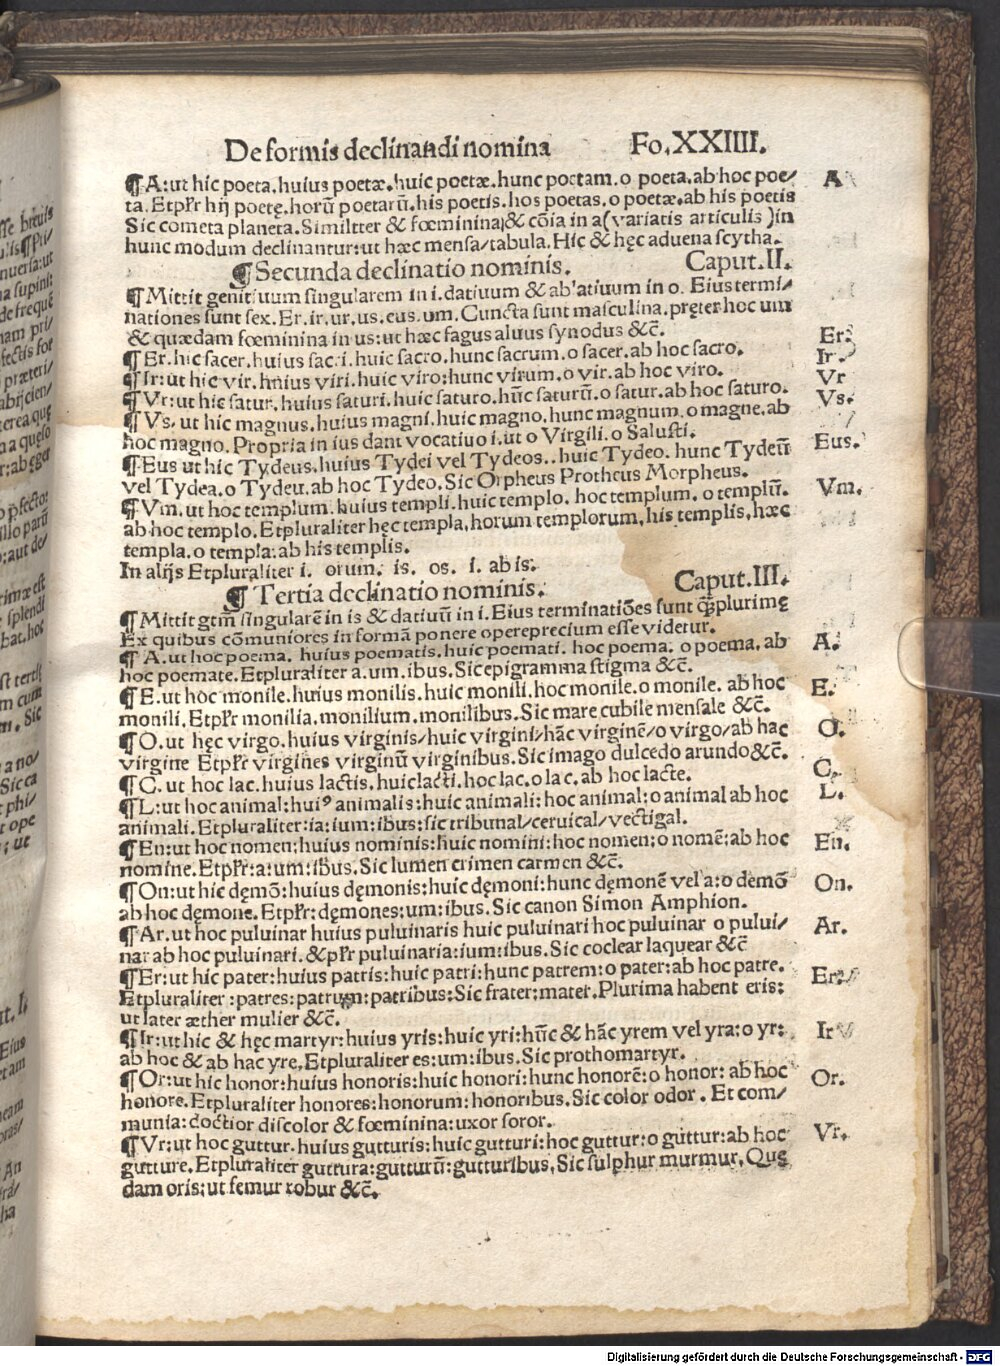 De formis declinandi nomina Fo.XXIIII.
¶A:ut hic poeta.huius poetæ.huic poetæ.hunc poetam.o poeta.ab hoc poe/ A
ta.Etpłr hij poetę.horū poetarū.his poetis.hos poetas.o poetæ.ab his poetis
Sic cometa planeta.Similiter & fœminina;& cōia in a(variatis articulis )in
hunc modum declinantur:ut hæc mensa/tabula.Hic & hęc aduena scytha.
¶Secunda declinatio nominis. Caput.II.
¶Mittit genitiuum singularem in i.datiuum & ablatiuum in o. Eius termi/
nationes sunt sex.Er.ir.ur.us.eus.um.Cuncta sunt masculina.pręter hoc um
& quædam fœminina in us:ut hæc fagus aluus synodus &c̄.
¶Er.hic sacer.huius sacri.huic sacro.hunc sacrum.o sacer.ab hoc sacro. Er:
¶Ir:ut hic vir.huius viri.huic viro:hunc virum.o vir.ab hoc viro. Ir.
¶Vr:ut hic satur.huius saturi.huic saturo.hūc saturū.o satur.ab hoc saturo. Vr
¶Vs. ut hic magnus.huius magni.huic magno.hunc magnum.o magne.ab Vs.
hoc magno.Propria in ius dant vocatiuo i.ut o Virgili.o Salusti.
¶Eus ut hic Tydeus.huius Tydei vel Tydeos..huic Tydeo. hunc Tydeū Eus.
vel Tydea.o Tydeu.ab hoc Tydeo.Sic Orpheus Protheus Morpheus.
¶Vm.ut hoc templum.huius templi.huic templo. hoc templum. o templū. Vm.
ab hoc templo.Etpluraliter hęc templa,horum templorum,his templis,hæc
templa.o templa:ab his templis.
In alijs Etpluraliter i. orum. is. os. i. ab is.
¶ Tertia declinatio nominis. Caput.III.
¶Mittit gtm̄ singularē in is & datiuū in i.Eius terminatiōes sunt q̄plurimę
Ex quibus cōmuniores in formā ponere opereprecium esse videtur.
¶ A.ut hoc poema. huius poematis.huic poemati. hoc poema.o poema,ab A.
hoc poemate.Etpluraliter a.um.ibus.Sic epigramma stigma &c̄.
¶E.ut hoc monile.huius monilis.huic monili.hoc monile.o monile. ab hoc E.
monili.Etpłr monilia.monilium.monilibus.Sic mare cubile mensale &c̄.
¶O.ut hęc virgo.huius virginis/huic virgini/hāc virginē/o virgo/ab hac O.
virgine Etpłr virgines virginū virginibus.Sic imago dulcedo arundo&c̄.
¶C.ut hoc lac.huius lactis.huiclacti.hoc lac.o lac.ab hoc lacte. C.
¶L:ut hoc animal:huiꝰ animalis:huic animali:hoc animal:o animal ab hoc L.
animali.Etpluraliter:ia:ium:ibus:sic tribunal/ceruical/vectigal.
¶En:ut hoc nomen;huius nominis:huic nomini:hoc nomen:o nomē:ab hoc En.
nomine.Etpłr:a:um:ibus.Sic lumen crimen carmen &c̄.
¶On:ut hic dęmō:huius dęmonis:huic dęmoni:hunc dęmonē vel a:o dęmō On.
ab hoc dęmone.Etpłr:dęmones:um:ibus.Sic canon Simon Amphion.
¶Ar.ut hoc puluinar huius puluinaris huic puluinari hoc puluinar o pului/ Ar.
nar ab hoc puluinari.&płr puluinaria:ium:ibus.Sic coclear laquear &c̄
¶Er:ut hic pater:huius patris:huic patri:hunc patrem:o pater:ab hoc patre. Er.
Etpluraliter :patres:patrum:patribus:Sic frater:mater.Plurima habent eris:
ut later æther mulier &c̄.
¶Ir:ut hic & hęc martyr:huius yris:huic yri:hūc & hāc yrem vel yra:o yr: Ir
ab hoc & ab hac yre,Etpluraliter es:um:ibus.Sic prothomartyr.
¶Or:ut hic honor:huius honoris:huic honori:hunc honorē:o honor: ab hoc Or.
honore.Etpluraliter honores:honorum:honoribus.Sic color odor. Et com/
munia:doctior discolor & fœminina:uxor soror.
¶Vr;ut hoc guttur.huius gutturis:huic gutturi:hoc guttur:o guttur:ab hoc Vr.
gutture.Etpluraliter guttura:gutturū:gutturibus,Sic sulphur murmur,Quę
dam oris;ut femur robur &c̄.
Digitalisierung gefördert durch die Deutsche Forschungsgemeinschaft - DFG